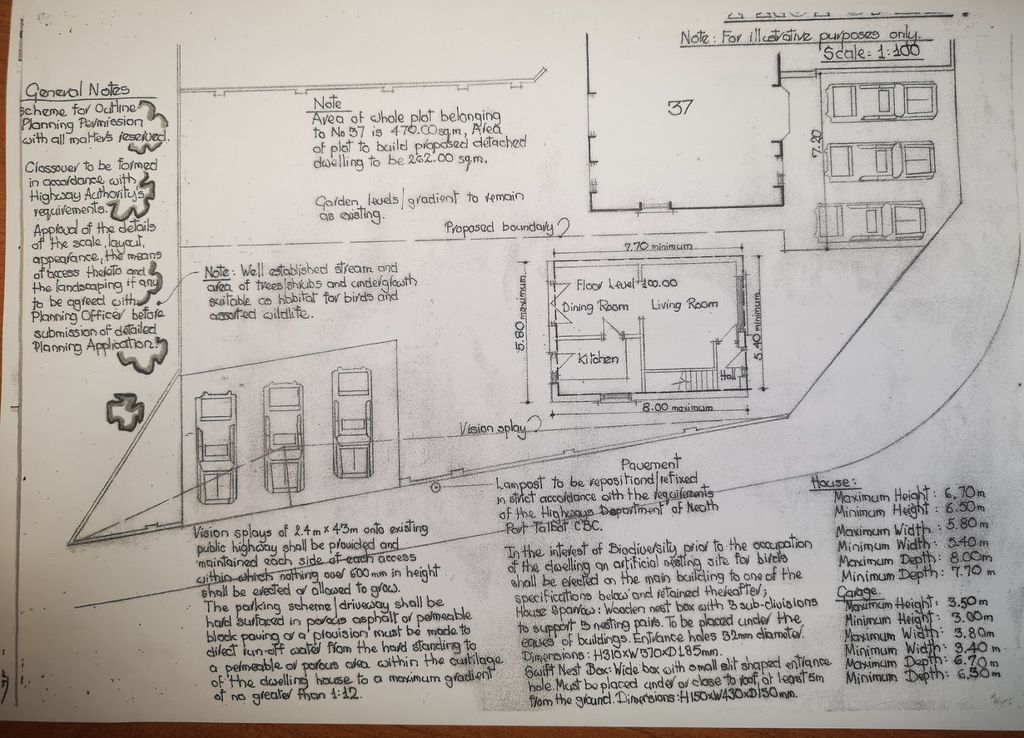 Note: For illustrative purposes only.
Scale: 1:100
General Notes
Scheme for Outline
Planning Permission
with all matters reserved.
Crossover to be formed
in accordance with
Highway Authority's
requirements.
Approval of the details
of the scale, layout,
appearance, the means
of access thereto and
the landscaping if any
to be agreed with
Planning Officer before
submission of detailed
Planning Application.
Note
Area of whole plot belonging
to No 37 is 470.00 sq.m, Area
of plot to build proposed detached
dwelling to be 262.00 sq.m.
Garden levels/gradient to remain
as existing.
37
7.20
Proposed boundary
Note: Well established stream and
area of trees/shrubs and undergrowth
suitable as habitat for birds and
assorted wildlife.
7.70 minimum
5.80 maximum
Floor Level +100.00
Dining Room
Living Room
Kitchen
Hall
5.40 minimum
8.00 maximum
Vision splay
Pavement
Lampost to be repositiond/refixed
in strict accordance with the requirements
of the Highways Department of Neath
Port Talbot CBC.
Vision splays of 2.4m x 43m onto existing
public highway shall be provided and
maintained each side of each access
within which nothing over 600mm in height
shall be erected or allowed to grow.
The parking scheme/driveway shall be
hard surfaced in porous asphalt or permeable
block paving or a 'provision' must be made to
direct run-off water from the hard standing to
a permeable or porous area within the curtilage
of the dwelling house to a maximum gradient
of no greater than 1:12.
In the interest of Biodiversity prior to the occupation
of the dwelling an artificial nesting site for birds
shall be erected on the main building to one of the
specifications below and retained thereafter;
House Sparrow: Wooden nest box with 3 sub-divisions
to support 3 nesting pairs. To be placed under the
eaves of buildings. Entrance holes 32mm diameter.
Dimensions: H310xW370xD185mm.
Swift Nest Box: Wide box with small slit shaped entrance
hole. Must be placed under or close to roof, at least 5m
from the ground. Dimensions: H150xW430xD150mm.
House:
Maximum Height: 6.70m
Minimum Height: 6.50m
Maximum Width: 5.80m
Minimum Width: 5.40m
Maximum Depth: 8.00m
Minimum Depth: 7.70m
Garage.
Maximum Height: 3.50m
Minimum Height: 3.00m
Maximum Width: 3.80m
Minimum Width: 3.40m
Maximum Depth: 6.70m
Minimum Depth: 6.30m